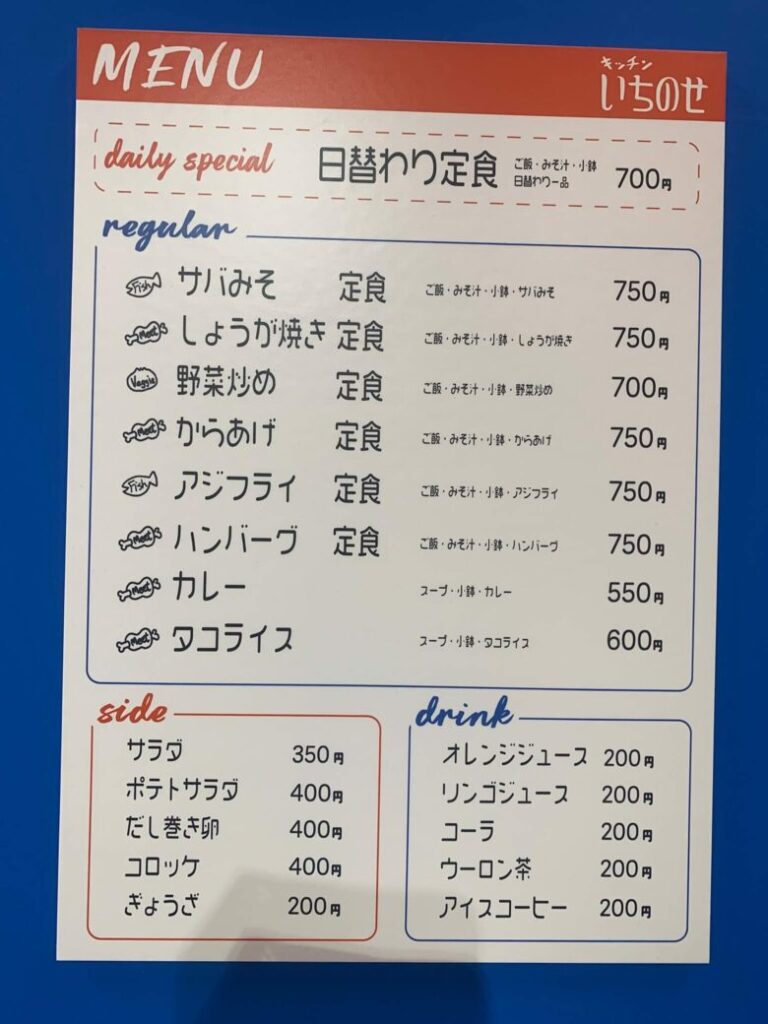 MENU
キッチン
いちのせ
daily special 日替わり定食 ご飯・みそ汁・小鉢 700円
日替わり一品
regular
Fish サバみそ 定食 ご飯・みそ汁・小鉢・サバみそ 750円
Meat しょうが焼き 定食 ご飯・みそ汁・小鉢・しょうが焼き 750円
Veggie 野菜炒め 定食 ご飯・みそ汁・小鉢・野菜炒め 700円
Meat からあげ 定食 ご飯・みそ汁・小鉢・からあげ 750円
Fish アジフライ 定食 ご飯・みそ汁・小鉢・アジフライ 750円
Meat ハンバーグ 定食 ご飯・みそ汁・小鉢・ハンバーグ 750円
Meat カレー スープ・小鉢・カレー 550円
Meat タコライス スープ・小鉢・タコライス 600円
side
サラダ 350円
ポテトサラダ 400円
だし巻き卵 400円
コロッケ 400円
ぎょうざ 200円
drink
オレンジジュース 200円
リンゴジュース 200円
コーラ 200円
ウーロン茶 200円
アイスコーヒー 200円